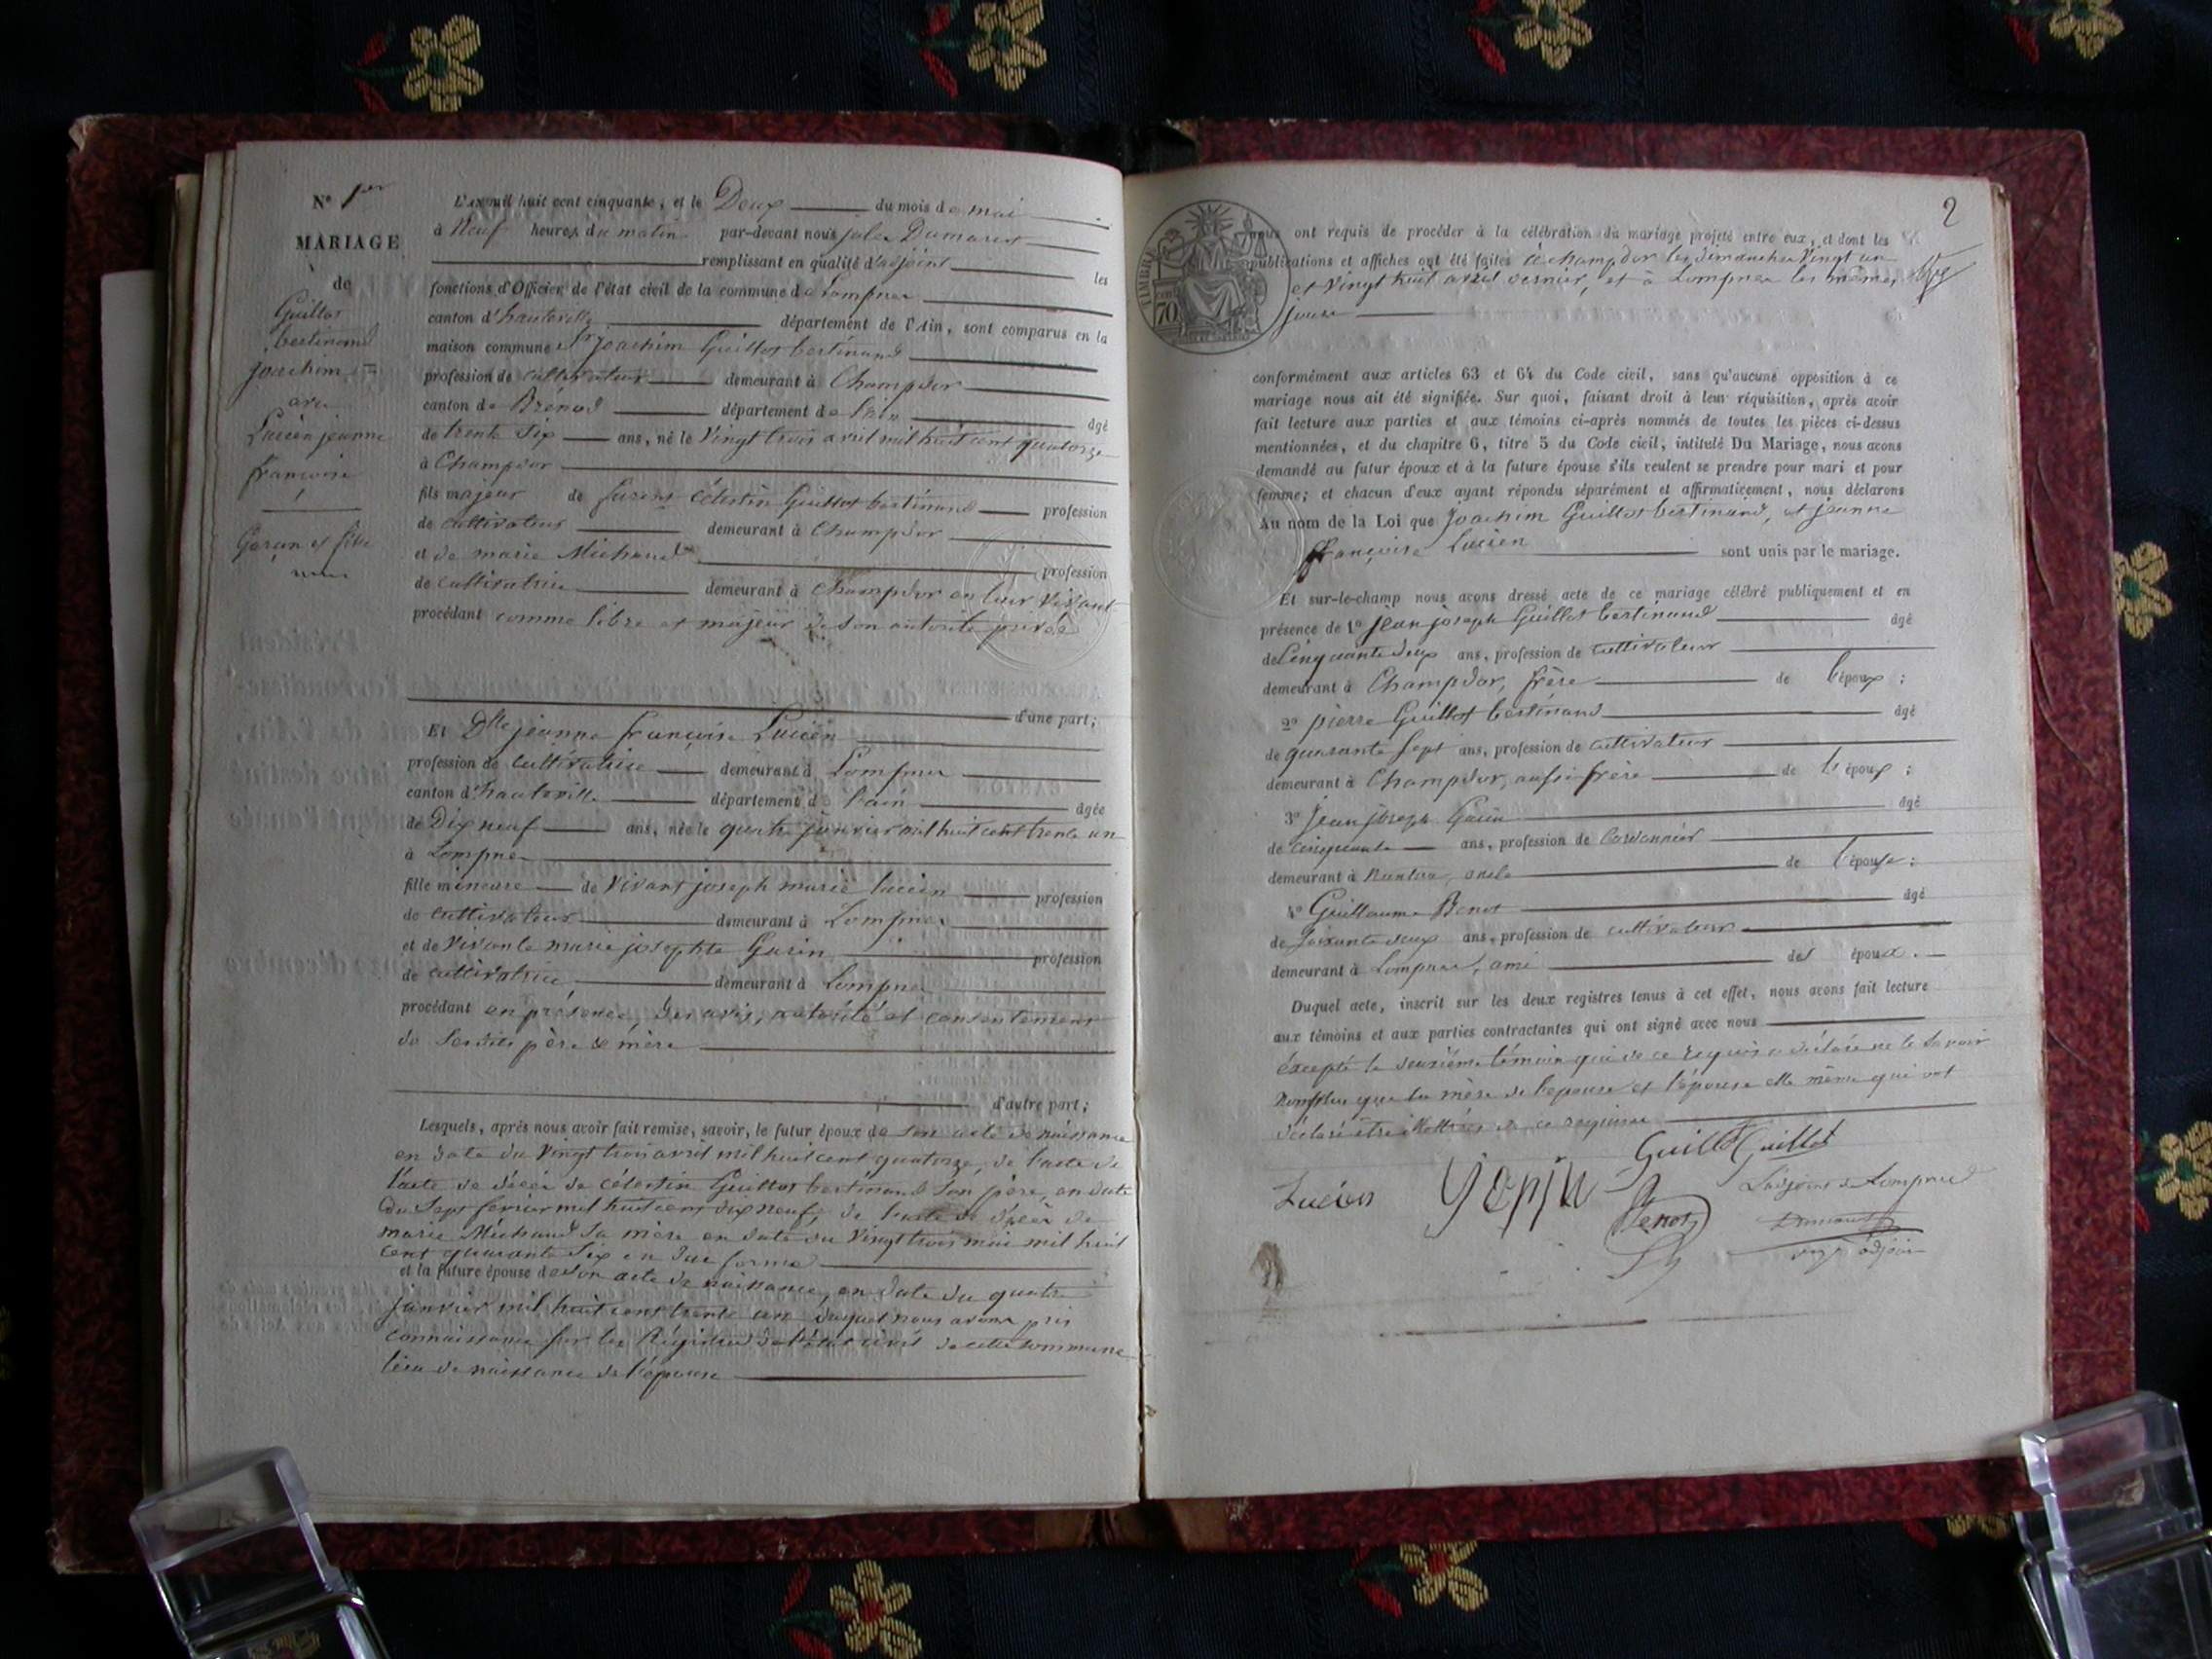 N° 1er
MARIAGE
de
Guillot
bertinand
joachim
avec
Lucien jeanne
françoise
Garçon et fille
L'AN mil huit cent cinquante, et le Deux du mois de mai
à Neuf heures du matin par-devant nous jules Dumarest
remplissant en qualité d'adjoint les
fonctions d'Officier de l'état civil de la commune de Lompnes
canton d'hauteville département de l'Ain, sont comparus en la
maison commune Sr joachim Guillot bertinand
profession de cultivateur demeurant à Champdor
canton de Brénod département de l'ain âgé
de trente Six ans, né le Vingt trois avril mil huit cent quatorze
à Champdor
fils majeur de célestin Guillot bertinand profession
de cultivateur demeurant à Champdor
et de marie Michaud profession
de cultivatrice demeurant à Champdor en leur vivant
procédant comme libre et majeur de son autorité privée
d'une part;
Et Dlle jeanne françoise Lucien
profession de cultivatrice demeurant à Lompnes
canton d'hauteville département de l'ain âgée
de Dix neuf ans, née le quatre janvier mil huit cent trente un
à Lompnes
fille mineure de Vivant joseph marie lucien profession
de cultivateur demeurant à Lompnes
et de Vivante marie josephte Garin profession
de cultivatrice demeurant à Lompnes
procédant en présence, des avis, autorité et consentement
de Sesdits père & mère
d'autre part;
Lesquels, après nous avoir fait remise, savoir, le futur époux de Son acte de naissance
en date du Vingt trois avril mil huit cent quatorze, de l'acte de
l'acte de décès de célestin Guillot bertinand Son père, en date
du Sept fevrier mil huit cent dix neuf, de l'acte de décès de
marie Michaud Sa mère en date du Vingt trois mai mil huit
cent quarante Six en due forme
et la future épouse de son acte de naissance, en date du quatre
janvier mil huit cent trente un duquel nous avons pris
connaissance sur les Régistres de l'état civil de cette commune
lieu de naissance de l'épouse
2
TIMBRE
70
nous ont requis de procéder à la célébration du mariage projeté entre eux, et dont les
publications et affiches ont été faites à champdor les dimanches Vingt un
et Vingt huit avril dernier, et à Lompnes les mêmes
jours
conformément aux articles 63 et 64 du Code civil, sans qu'aucune opposition à ce
mariage nous ait été signifiée. Sur quoi, faisant droit à leur réquisition, après avoir
fait lecture aux parties et aux témoins ci-après nommés de toutes les pièces ci-dessus
mentionnées, et du chapitre 6, titre 5 du Code civil, intitulé Du Mariage, nous avons
demandé au futur époux et à la future épouse s'ils veulent se prendre pour mari et pour
femme; et chacun d'eux ayant répondu séparément et affirmativement, nous déclarons
Au nom de la Loi que Joachim Guillot bertinand, et jeanne
françoise Lucien sont unis par le mariage.
Et sur-le-champ nous avons dressé acte de ce mariage célébré publiquement et en
présence de 1° jean joseph Guillot bertinand âgé
de Cinquante deux ans, profession de cultivateur
demeurant à Champdor, frère de l'époux;
2° pierre Guillot bertinand âgé
de quarante Sept ans, profession de cultivateur
demeurant à Champdor, aussi frère de l'époux;
3° jean joseph Garin âgé
de cinquante ans, profession de Cordonnier
demeurant à Nantua, oncle de l'épouse;
4° Guillaume Benot âgé
de Soixante deux ans, profession de cultivateur
demeurant à Lompnes, ami des époux.
Duquel acte, inscrit sur les deux registres tenus à cet effet, nous avons fait lecture
aux témoins et aux parties contractantes qui ont signé avec nous
excepté le deuxième témoin qui de ce requis a déclaré ne le Savoir
nomplus que la mère de l'epouse et l'épouse elle même qui ont
déclaré être illettrées de ce requises
Guillot Guillot
Lucien
Benot
L'adjoint de Lompnes
Dumarest
adjoint